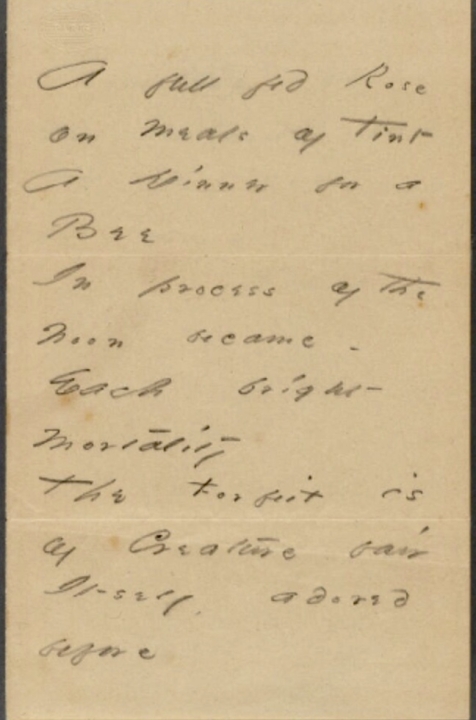 A full fed Rose
on meals of Tint
A Dinner for a
Bee
In process of the
Noon became -
Each bright
Mortality
The Forfeit is
of Creature fair
Itself, adored
before